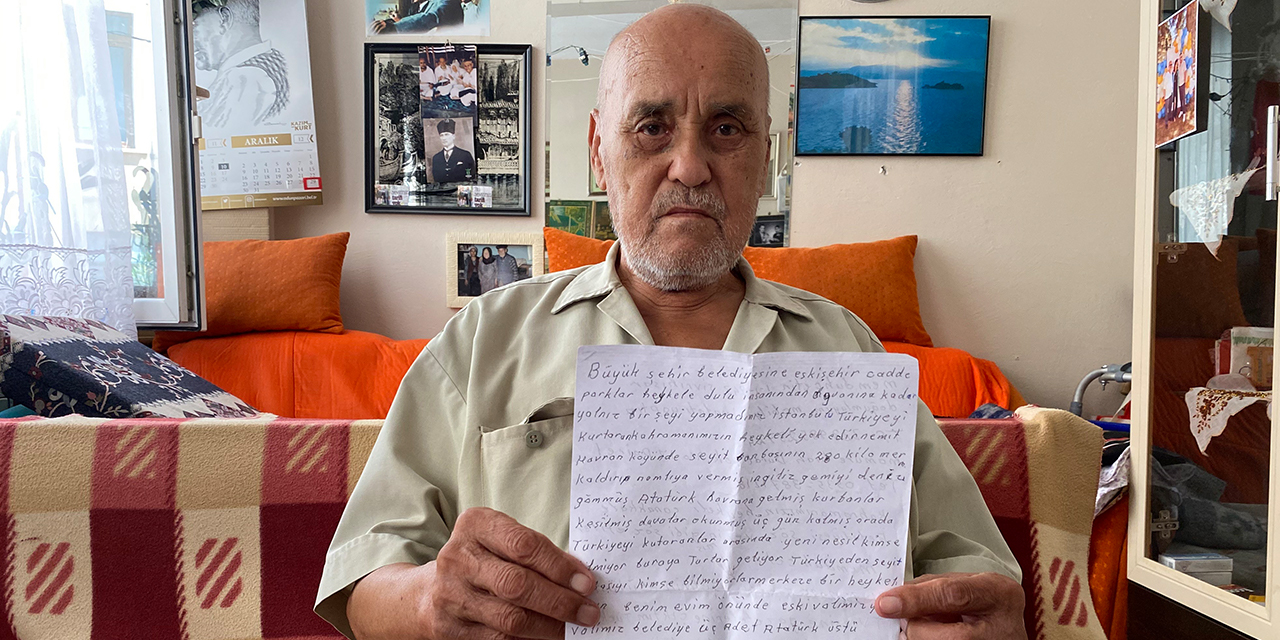 KAZIM
KURT
ARALIK
Büyük şehir belediyesine eskişehir cadde
parklar heykele dulu insanından hayvanına kadar
yalnız bir şeyi yapmadınız İstanbulu Türkiyeyi
Kurtaran kahramanımızın heykeli yok edirnemit
havran köyünde seyit onbaşının 280 kilo mer
kaldırıp namluya vermiş ingiliz gemiyi denize
gömmüş Atatürk havrana gelmiş kurbanlar
kesilmiş davalar okunmuş üç gün kalmış orada
Türkiyeyi kutaranlar arasında yeni nesil kimse
bilmiyor buraya Turlar geliyor Türkiyeden seyit
kimse bilmiyorlar merkeze bir heykel
benim evim önünde eski valimiz
valimiz belediye üç Adet Atatürk üstü